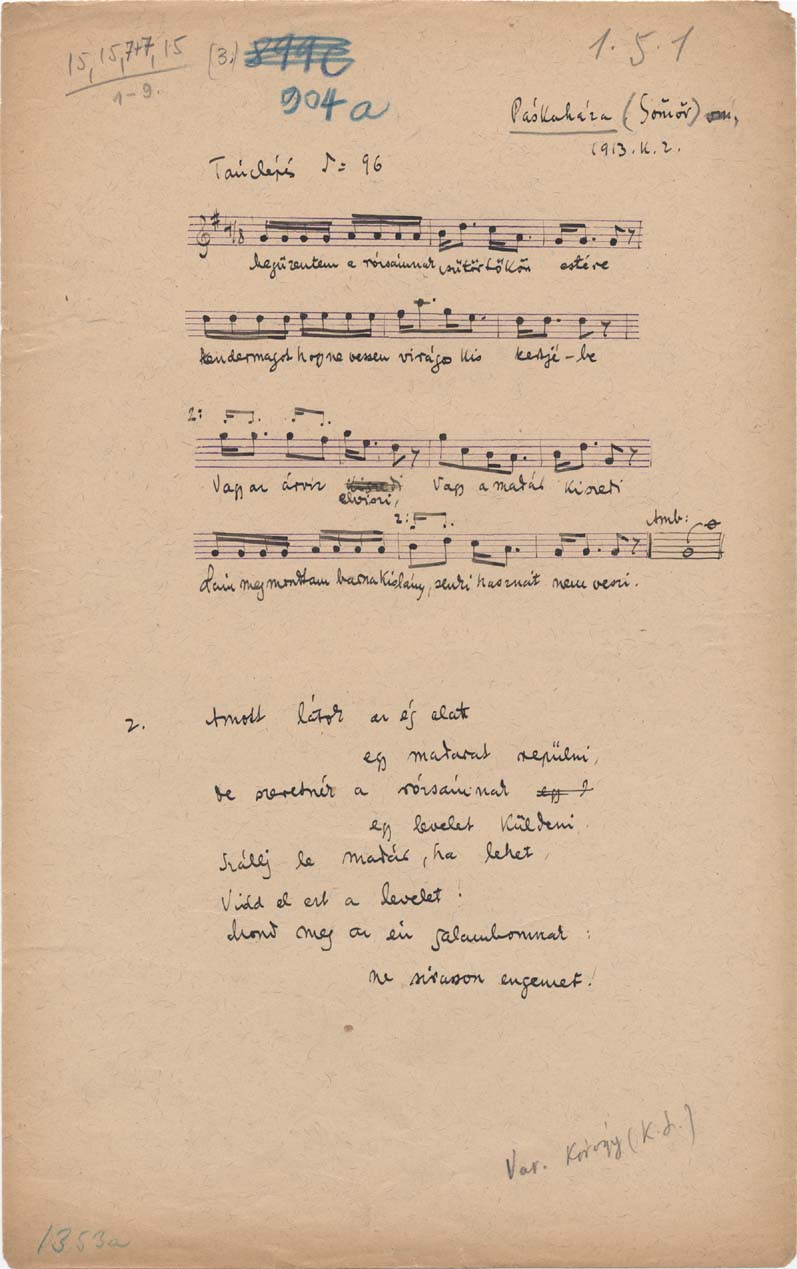 15, 15, 7+7, 15
1-9.
(3.) 899c
904a
1.5.1
Páskaháza (Gömör)
1913. K. Z.
Tánclépés ♪= 96
4/8
Megüzentem a rózsámnak csütörtökön estére
kendermagot hogy ne vessen virágos kis kertjé-be
2:
Vagy az árvíz kiszedi Vagy a madár kiszedi
elviszi,
2:
Amb:
Lám megmondtam barna kislány, senki hasznát nem veszi.
2. Amott látok az ég alatt
egy madarat repülni,
de szeretnék a rózsámnak egy l
egy levelet küldeni.
Szállj le madár, ha lehet,
Vidd el ezt a levelet!
Mond meg az én galambomnak:
ne sirasson engemet!
Var. Kórógy (K. L.)
1353a